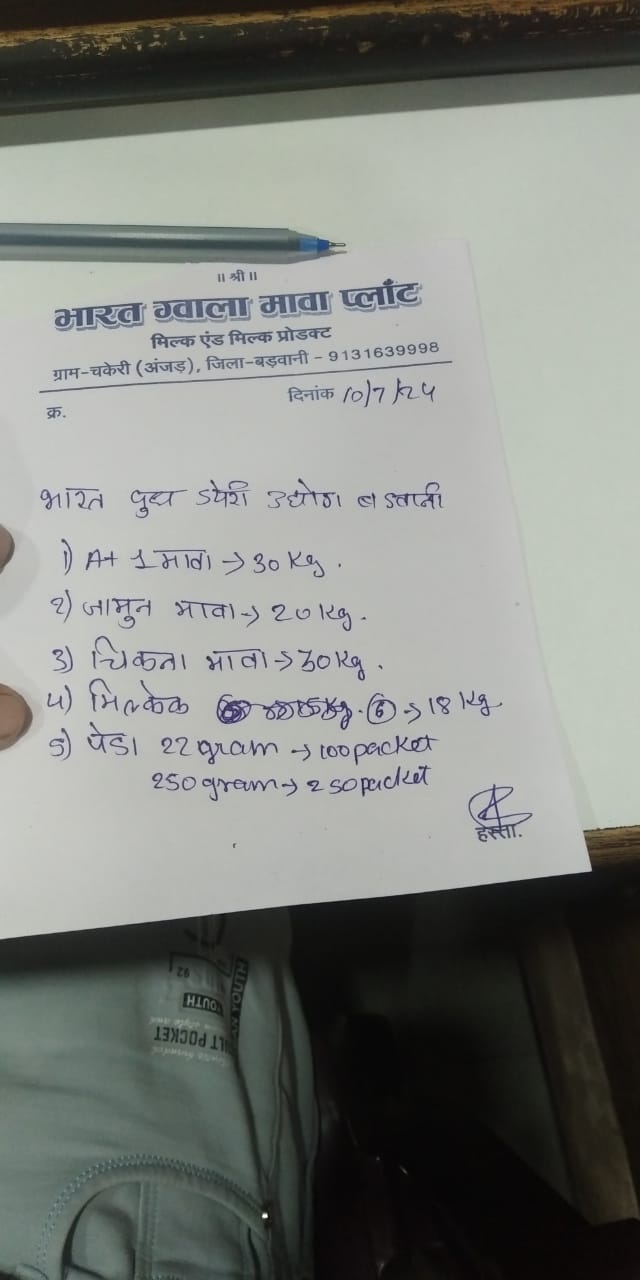 ॥ श्री ॥
भारत ग्वाला मावा प्लाँट
मिल्क एंड मिल्क प्रोडक्ट
ग्राम-चकेरी (अंजड़), जिला-बड़वानी - 9131639998
क्र.
दिनांक 10/7/24
भारत दुग्ध डेयरी उद्योग बडवानी
1) A+ 1 मावा → 30 kg.
2) जामुन मावा → 20 kg.
3) चिकना मावा → 30 kg.
4) मिल्केक ⑥ → 18 kg
5) पेडा 22 gram → 100 packet
250 gram → 250 packet
हस्ता.
92
YOUTH
YOUTH
LT POCKET